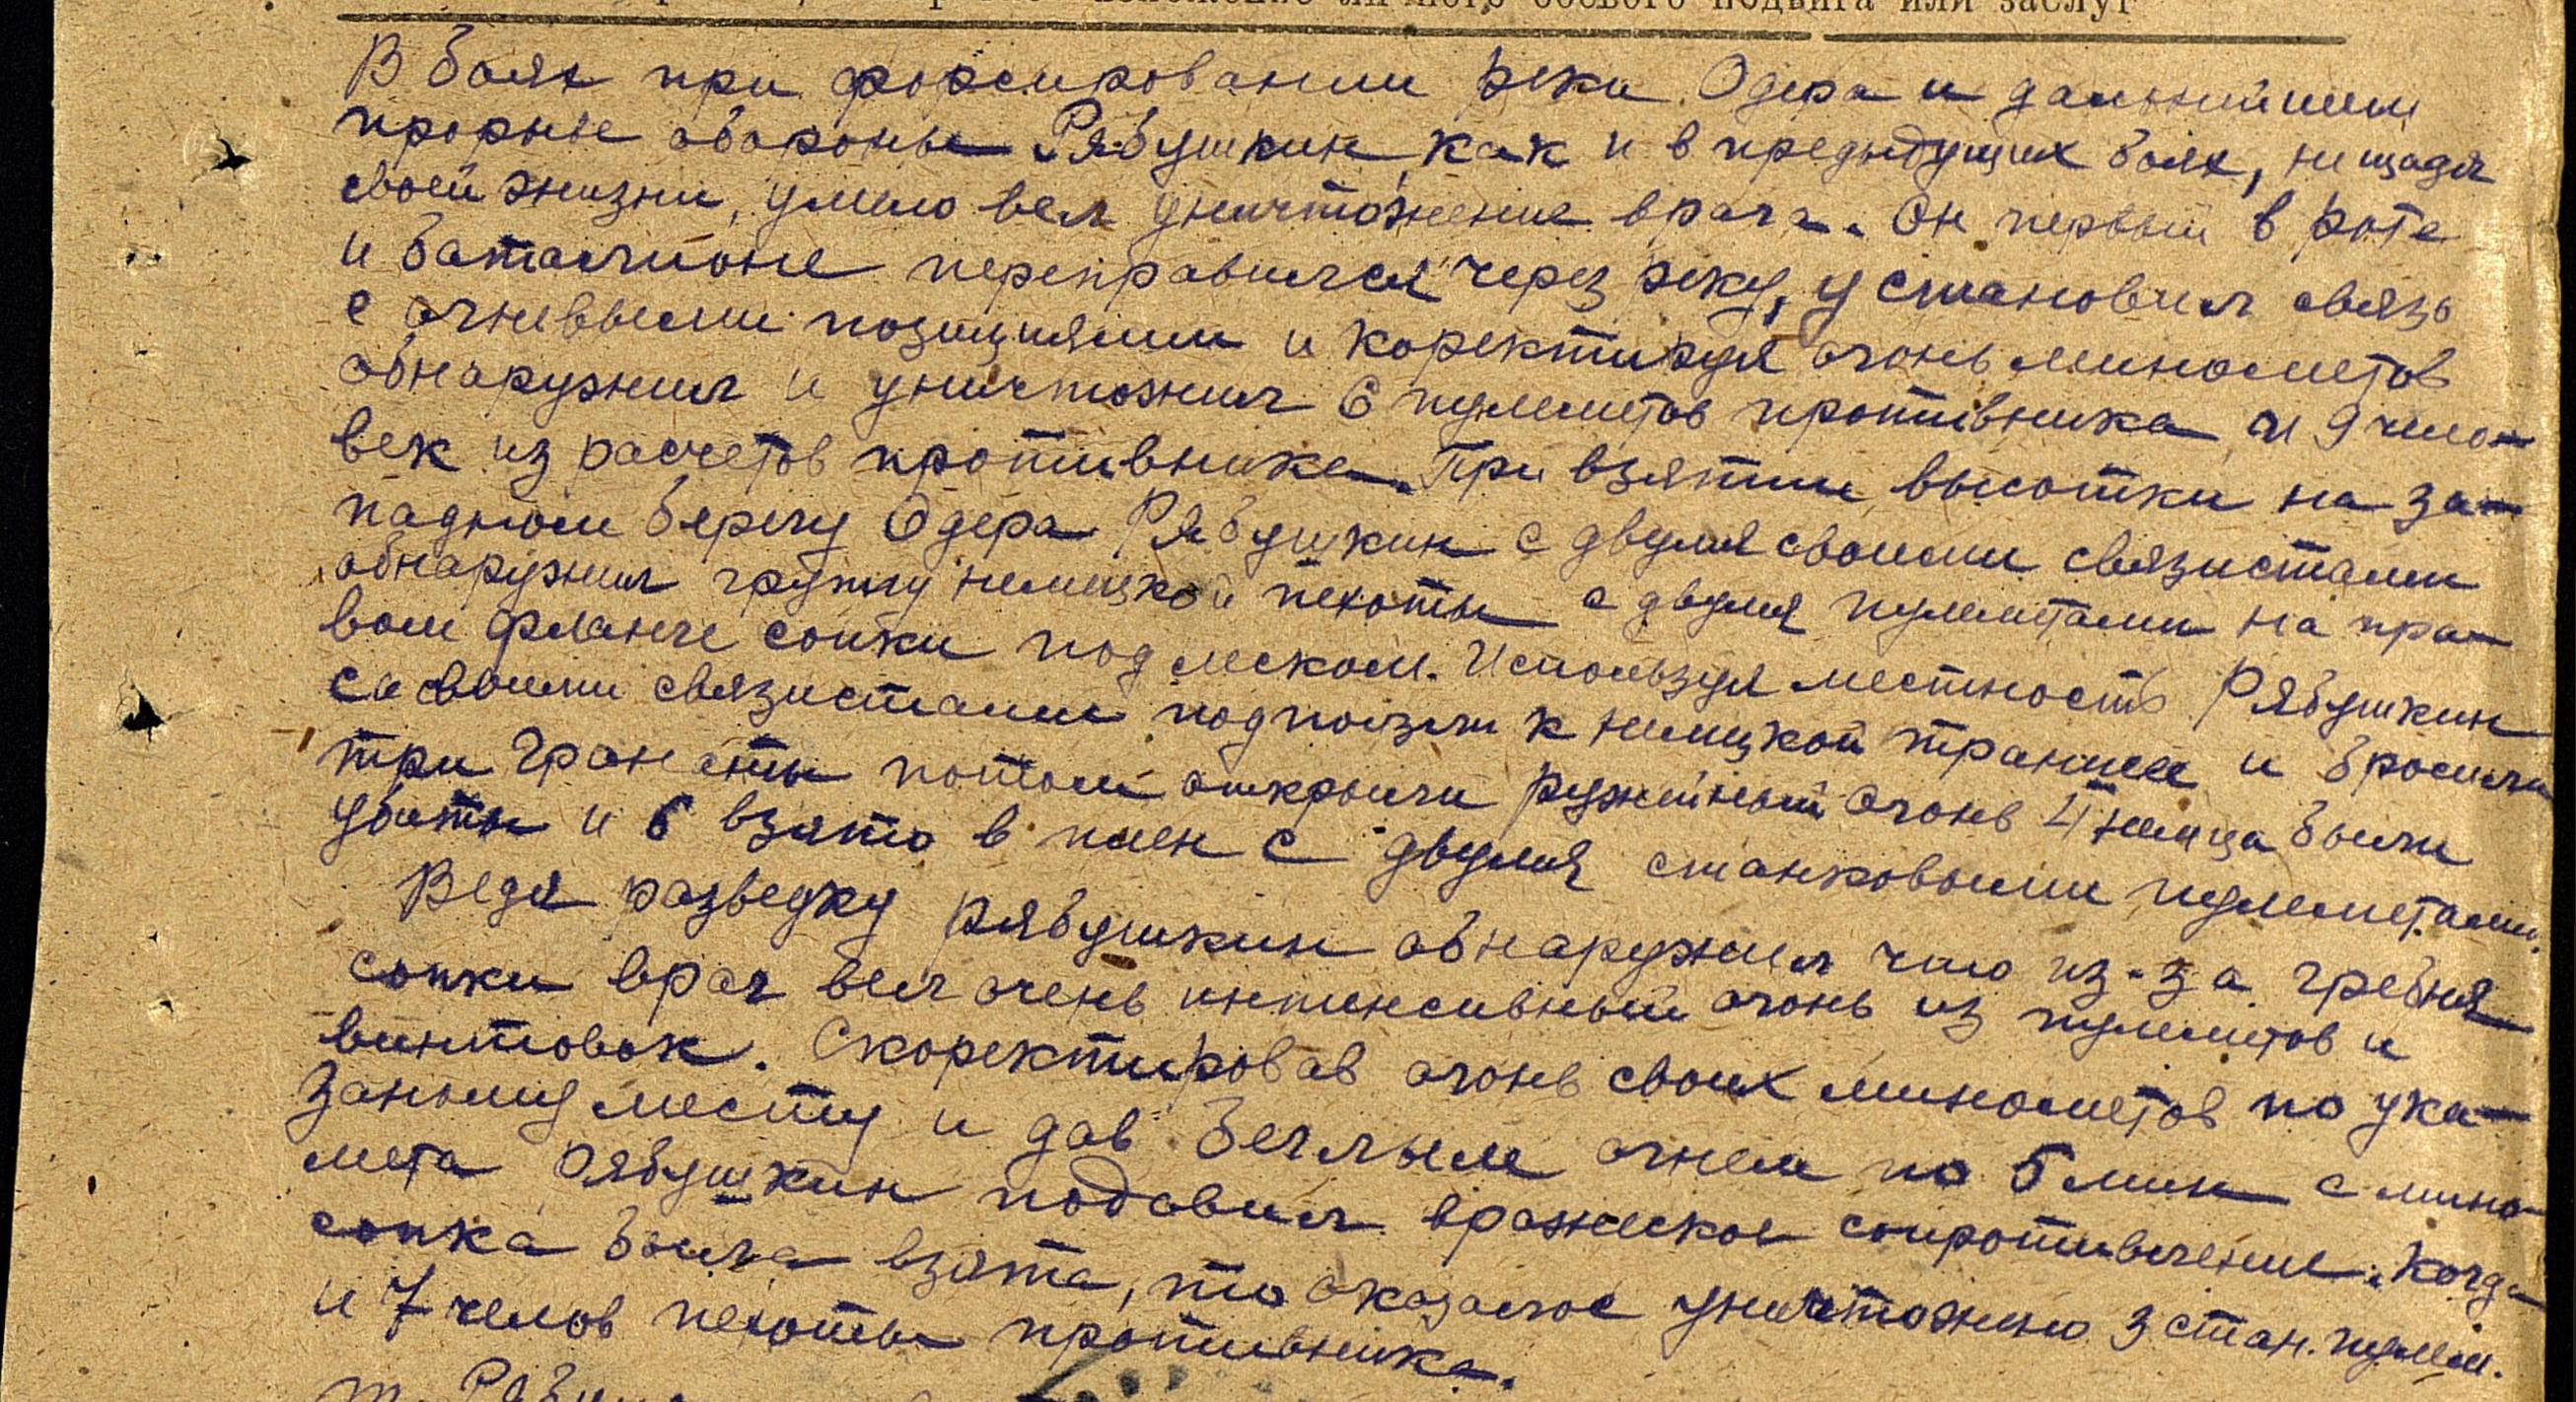 личного боевого подвига или заслуг
В боях при форсировании реки Одера и дальнейшем
прорыве обороны Рябушкин, как и в предыдущих боях, не щадя
своей жизни, умело вел уничтожение врага. Он первый в роте
и батальионе переправился через реку, установил связь
с огневыми позициями и коректируя огонь минометов
обнаружил и уничтожил 6 пулеметов противника и 9 чело-
век из расчетов противника. При взятии высотки на за-
падном берегу Одера Рябушкин с двумя своими связистами
обнаружил группу немецкой пехоты с двумя пулеметами на пра-
вом фланге сопки под леском. Используя местность Рябушкин
со своими связистами подползли к немецкой траншее и бросили
три гранаты потом открыли ружейный огонь 4 немца были
убиты и 6 взято в плен с двумя станковыми пулеметами.
Ведя разведку Рябушкин обнаружил что из-за гребня
сопки враг вел очень интенсивный огонь из пулеметов и
винтовок. Скоректировав огонь своих минометов по ука-
занному месту и дав беглым огнем по 5 мин с мино-
мета Рябушкин подавил вражеское сопротивление. Когда
сопка была взята, то оказалось уничтожено 3 стан. пулем.
и 7 челов пехоты противника.